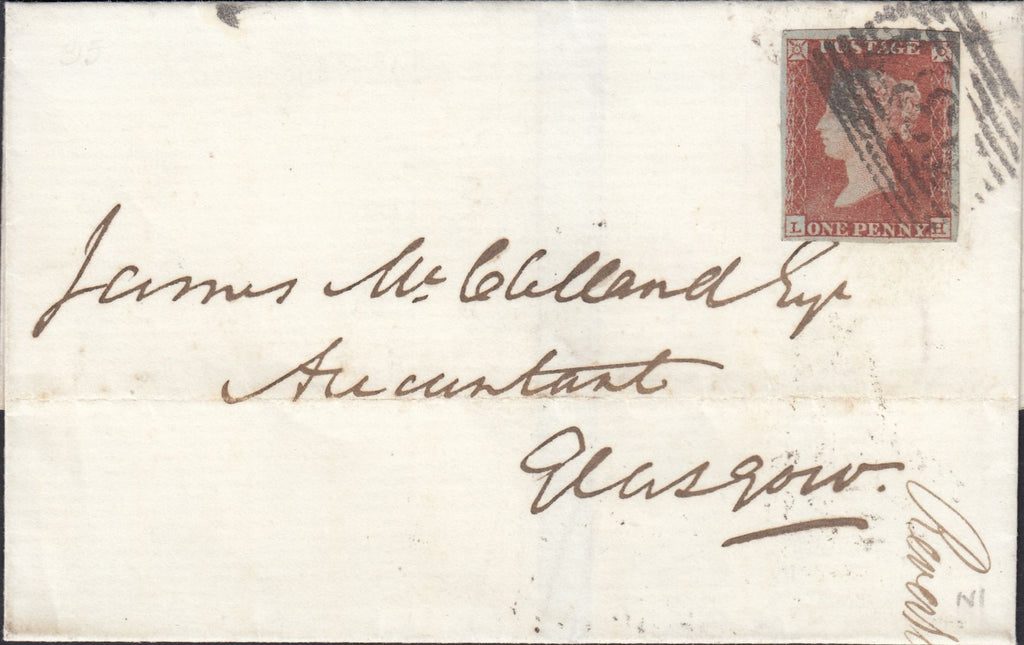 POSTAGE
L ONE PENNY H
James McClelland Esqr
Accountant
Glasgow.